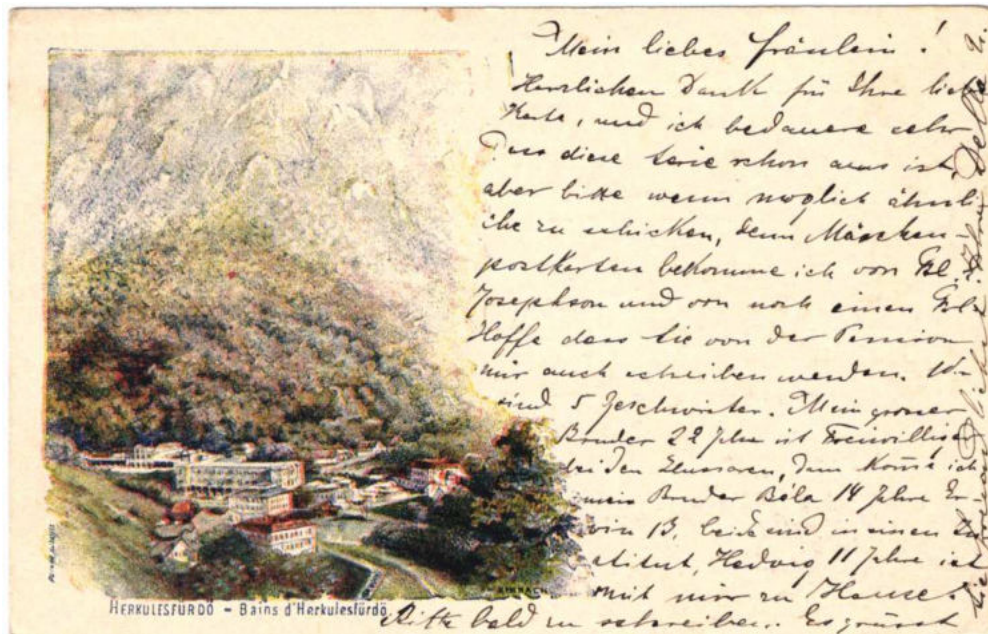 Mein liebes Fräulein!
Herzlichen Dank für Ihre liebe
Karte, und ich bedauere sehr
Dass diese Serie schon aus ist
aber bitte wenn moglich ähnli-
che zu schicken, denn Märchen-
postkarten bekomme ich von Frl.
Josephson und von noch einen Frl.
Hoffe dass Sie von der Pension
mir auch schreiben werden. Wir
sind 5 Geschwister. Mein grosser
Bruder 22 Jahre ist Freiwilliger
bei den Husaren, dann komme ich
mein Bruder Béla 14 Jahre Er-
win 13, beide sind in einen In-
stitut, Hedwig 11 Jahre ist
mit mir zu Hause.
Bitte bald zu schreiben. Es grüsst
Sie Ihre Della
HERKULESFÜRDŐ – Bains d'Herkulesfürdő.